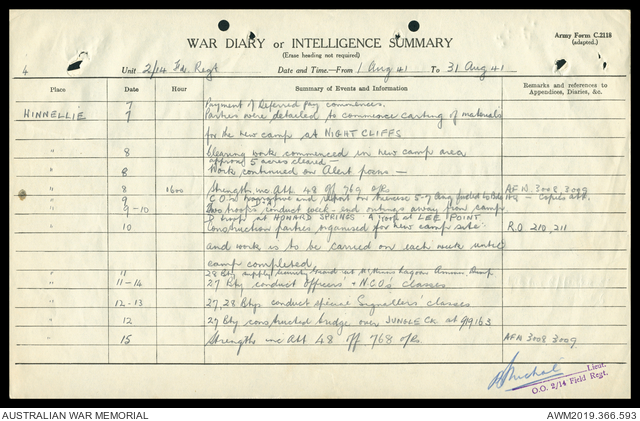 Army Form C.2118
(adapted.)
WAR DIARY or INTELLIGENCE SUMMARY
(Erase heading not required)
4
Unit 2/14 Fd. Regt Date and Time—From 1 Aug 41 To 31 Aug 41
Place Date Hour Summary of Events and Information Remarks and references to Appendices, Diaries, &c.
7 Payment of Deferred Pay commences.
WINNELLIE 7 Parties were detailed to commence carting of materials
for the new camp at NIGHT CLIFFS
" 8 Clearing work commenced in new camp area
approx 5 acres cleared -
" 8 Work continued on Alert posns -
" 8 1600 Strength inc Att 48 off 769 o/Rs AF W. 3008, 3009
" 9 C.O's narrative and report on exercise 5-7 Aug to Bde HQ - Copies att.
" 9-10 Two troops conduct week-end outings away from camp
troop at HOWARD SPRINGS troop at LEE POINT
" 10 Construction parties organised for new camp site R.O 210, 211
and work is to be carried on each week until
camp completed
" 11 28 Bty supply guard at Lagoon Ammn. Dump
" 11-14 27 Bty conduct officers & N.C.O.s classes
" 12-13 27, 28 Btys conduct Signallers' classes
" 12 27 Bty constructed bridge over JUNGLE CK at 9/9163
" 15 Strength inc Att 48 off 768 o/Rs AFW 3008 3009
Lieut.
O.O. 2/14 Field Regt.
AUSTRALIAN WAR MEMORIAL AWM2019.366.593